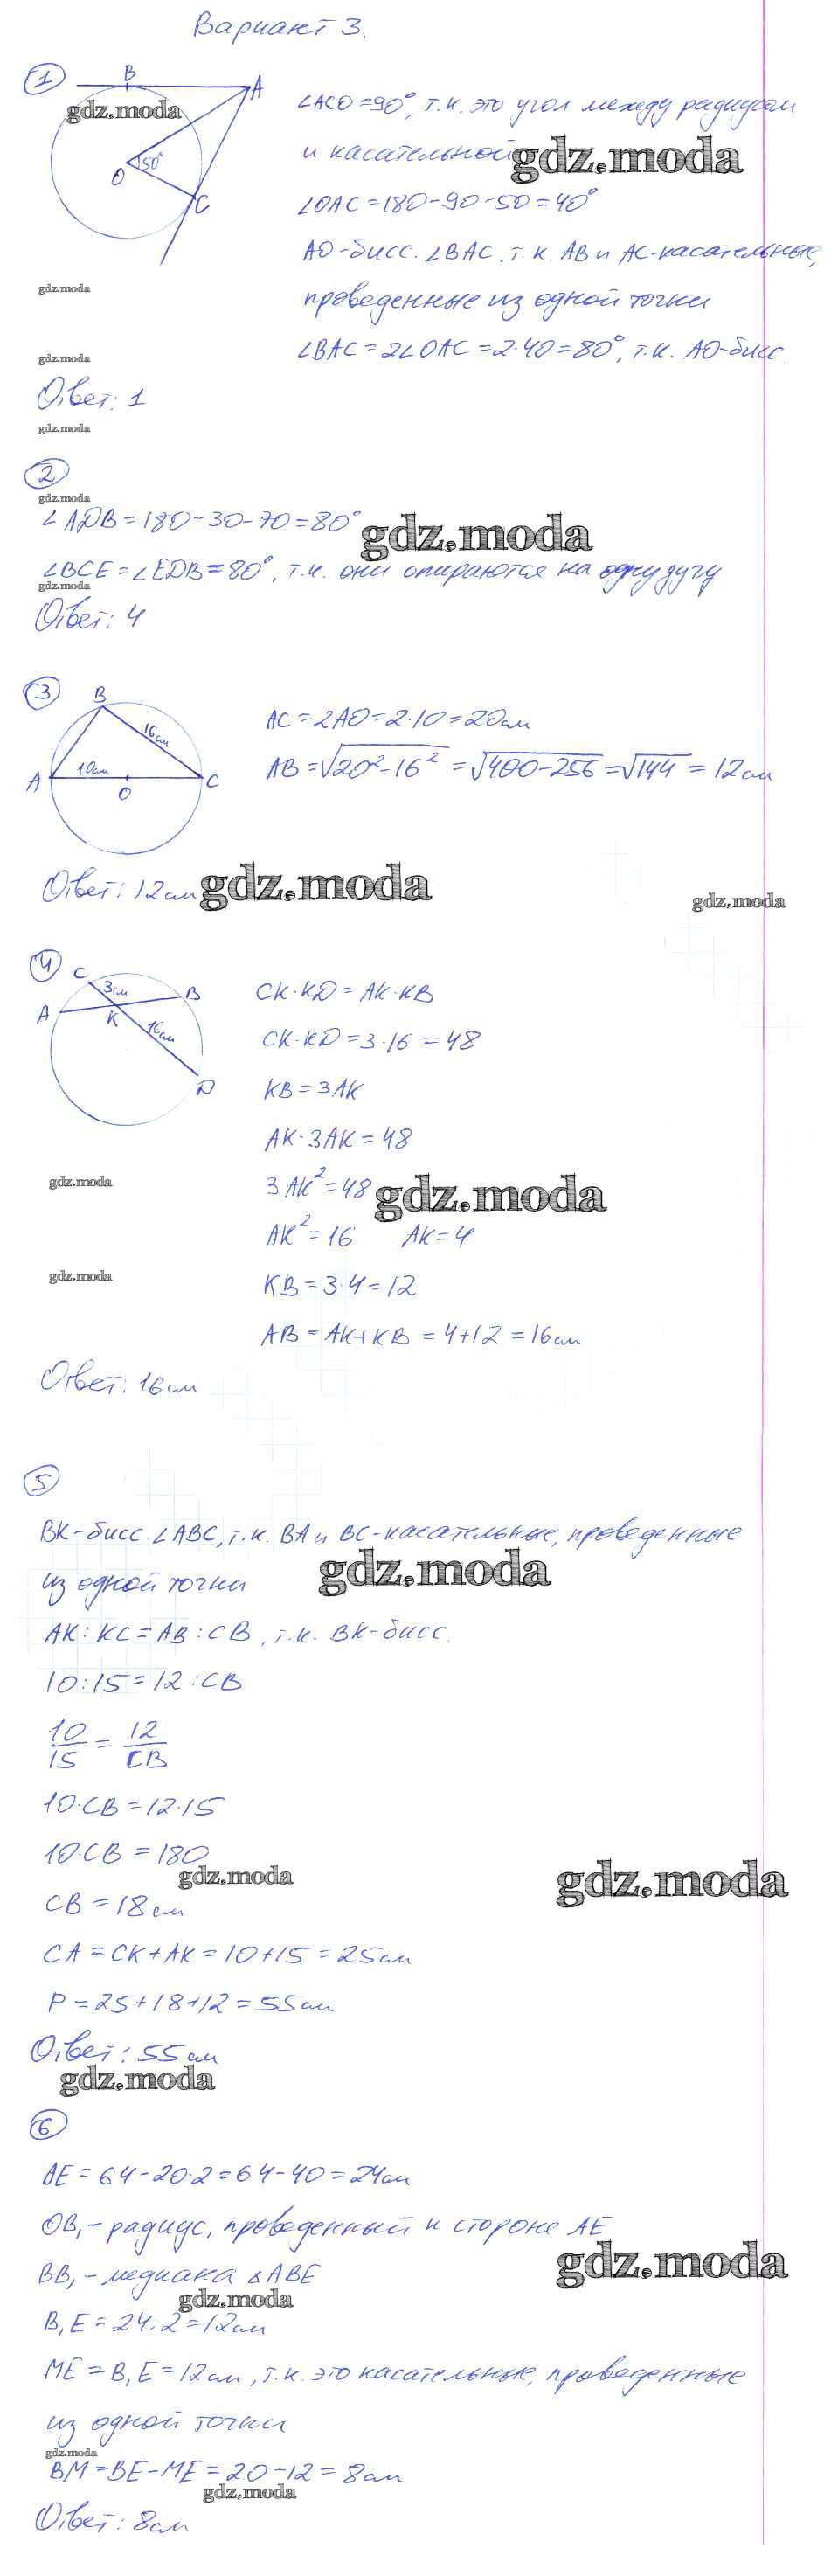 Вариант 3.
1
B
A
50°
O
C
∠ACO = 90°, т.к. это угол между радиусом
и касательной
∠OAC = 180 - 90 - 50 = 40°
AO - бисс. ∠BAC, т.к. AB и AC - касательные,
проведенные из одной точки
∠BAC = 2∠OAC = 2·40 = 80°, т.к. AO - бисс
Ответ: 1
gdz.moda
gdz.moda
gdz.moda
gdz.moda
gdz.moda
2
gdz.moda
∠ADB = 180 - 30 - 70 = 80°
gdz.moda
∠BCE = ∠EDB = 80°, т.к. они опираются на одну дугу
gdz.moda
Ответ: 4
3
B
16см
A
10см
O
C
AC = 2AO = 2·10 = 20см
AB = √20² - 16² = √400 - 256 = √144 = 12см
Ответ: 12см
gdz.moda
gdz.moda
4
C
3см
B
A
K
16см
D
CK·KD = AK·KB
CK·KD = 3·16 = 48
KB = 3AK
AK·3AK = 48
gdz.moda
3AK² = 48
gdz.moda
AK² = 16 AK = 4
gdz.moda
KB = 3·4 = 12
AB = AK + KB = 4 + 12 = 16см
Ответ: 16см
5
BK - бисс. ∠ABC, т.к. BA и BC - касательные, проведенные
из одной точки
gdz.moda
AK : KC = AB : CB, т.к. BK - бисс.
10 : 15 = 12 : CB
10/15 = 12/CB
10·CB = 12·15
10·CB = 180
gdz.moda
gdz.moda
CB = 18см
CA = CK + AK = 10 + 15 = 25см
P = 25 + 18 + 12 = 55см
Ответ: 55см
gdz.moda
6
AE = 64 - 20·2 = 64 - 40 = 24см
OB₁ - радиус, проведенный к стороне AE
gdz.moda
BB₁ - медиана ΔABE
gdz.moda
B₁E = 24:2 = 12см
ME = B₁E = 12см, т.к. это касательные, проведенные
из одной точки
gdz.moda
BM = BE - ME = 20 - 12 = 8см
gdz.moda
Ответ: 8см